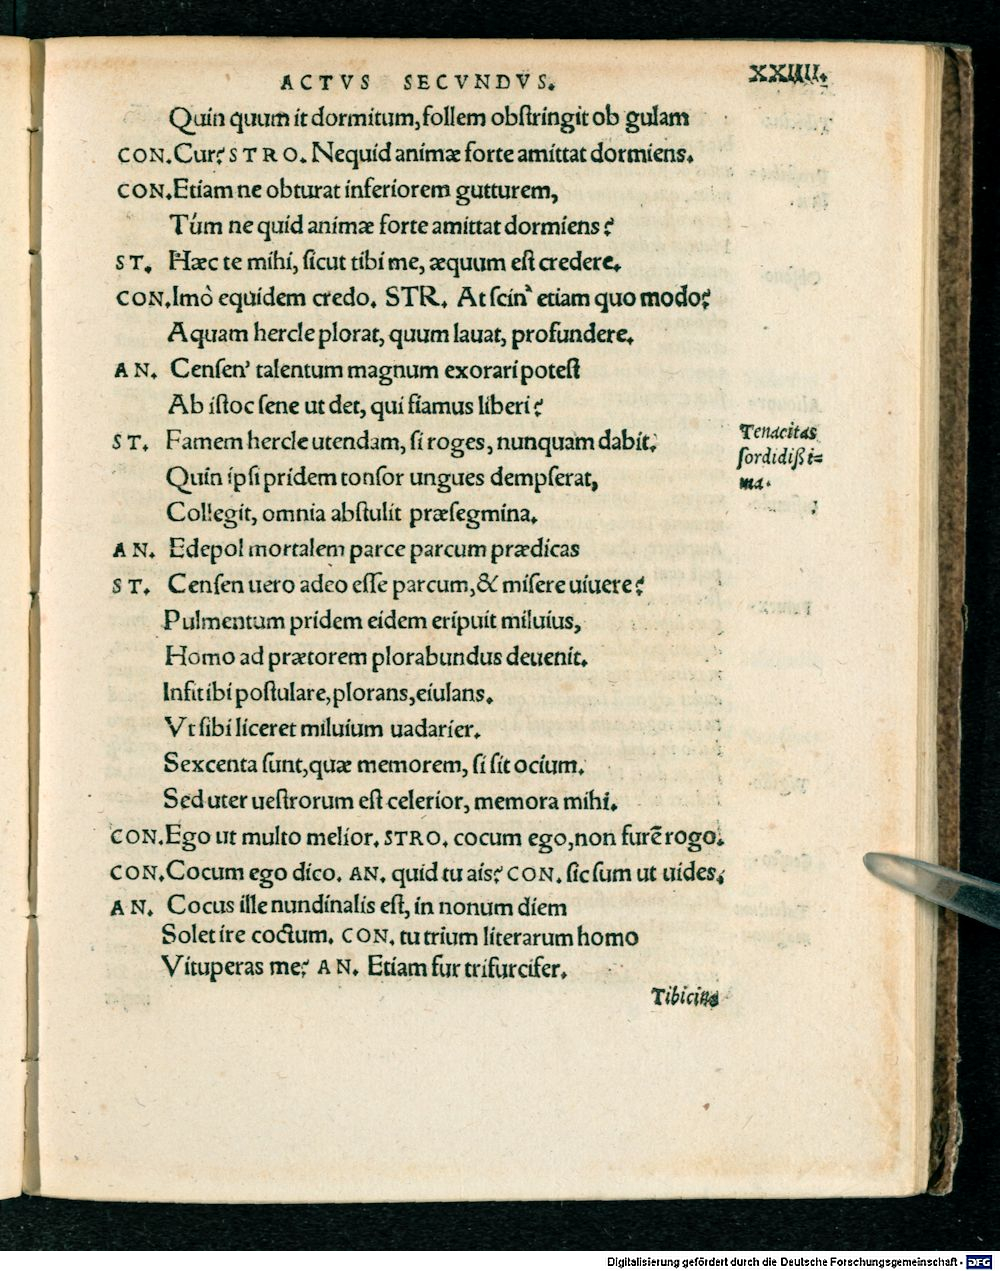 ACTVS SECVNDVS.
XXIIII.
Quin quum it dormitum, follem obstringit ob gulam
CON. Cur? STRO. Nequid animæ forte amittat dormiens.
CON. Etiam ne obturat inferiorem gutturem,
Túm ne quid animæ forte amittat dormiens?
ST. Hæc te mihi, sicut tibi me, æquum est credere.
CON. Imò equidem credo. STR. At scin' etiam quo modo?
Aquam hercle plorat, quum lauat, profundere.
AN. Censen' talentum magnum exorari potest
Ab istoc sene ut det, qui fiamus liberi?
ST. Famem hercle utendam, si roges, nunquam dabit.
Quin ipsi pridem tonsor ungues dempserat,
Collegit, omnia abstulit præsegmina.
Tenacitas
sordidißi=
ma.
AN. Edepol mortalem parce parcum prædicas
ST. Censen uero adeo esse parcum, & misere uiuere?
Pulmentum pridem eidem eripuit miluius,
Homo ad prætorem plorabundus deuenit.
Infit ibi postulare, plorans, eiulans.
Vt sibi liceret miluium uadarier.
Sexcenta sunt, quæ memorem, si sit ocium.
Sed uter uestrorum est celerior, memora mihi.
CON. Ego ut multo melior. STRO. cocum ego, non furē rogo.
CON. Cocum ego dico. AN. quid tu ais? CON. sic sum ut uides.
AN. Cocus ille nundinalis est, in nonum diem
Solet ire coctum. CON. tu trium literarum homo
Vituperas me? AN. Etiam fur trifurcifer.
Tibicinæ
Digitalisierung gefördert durch die Deutsche Forschungsgemeinschaft - DFG